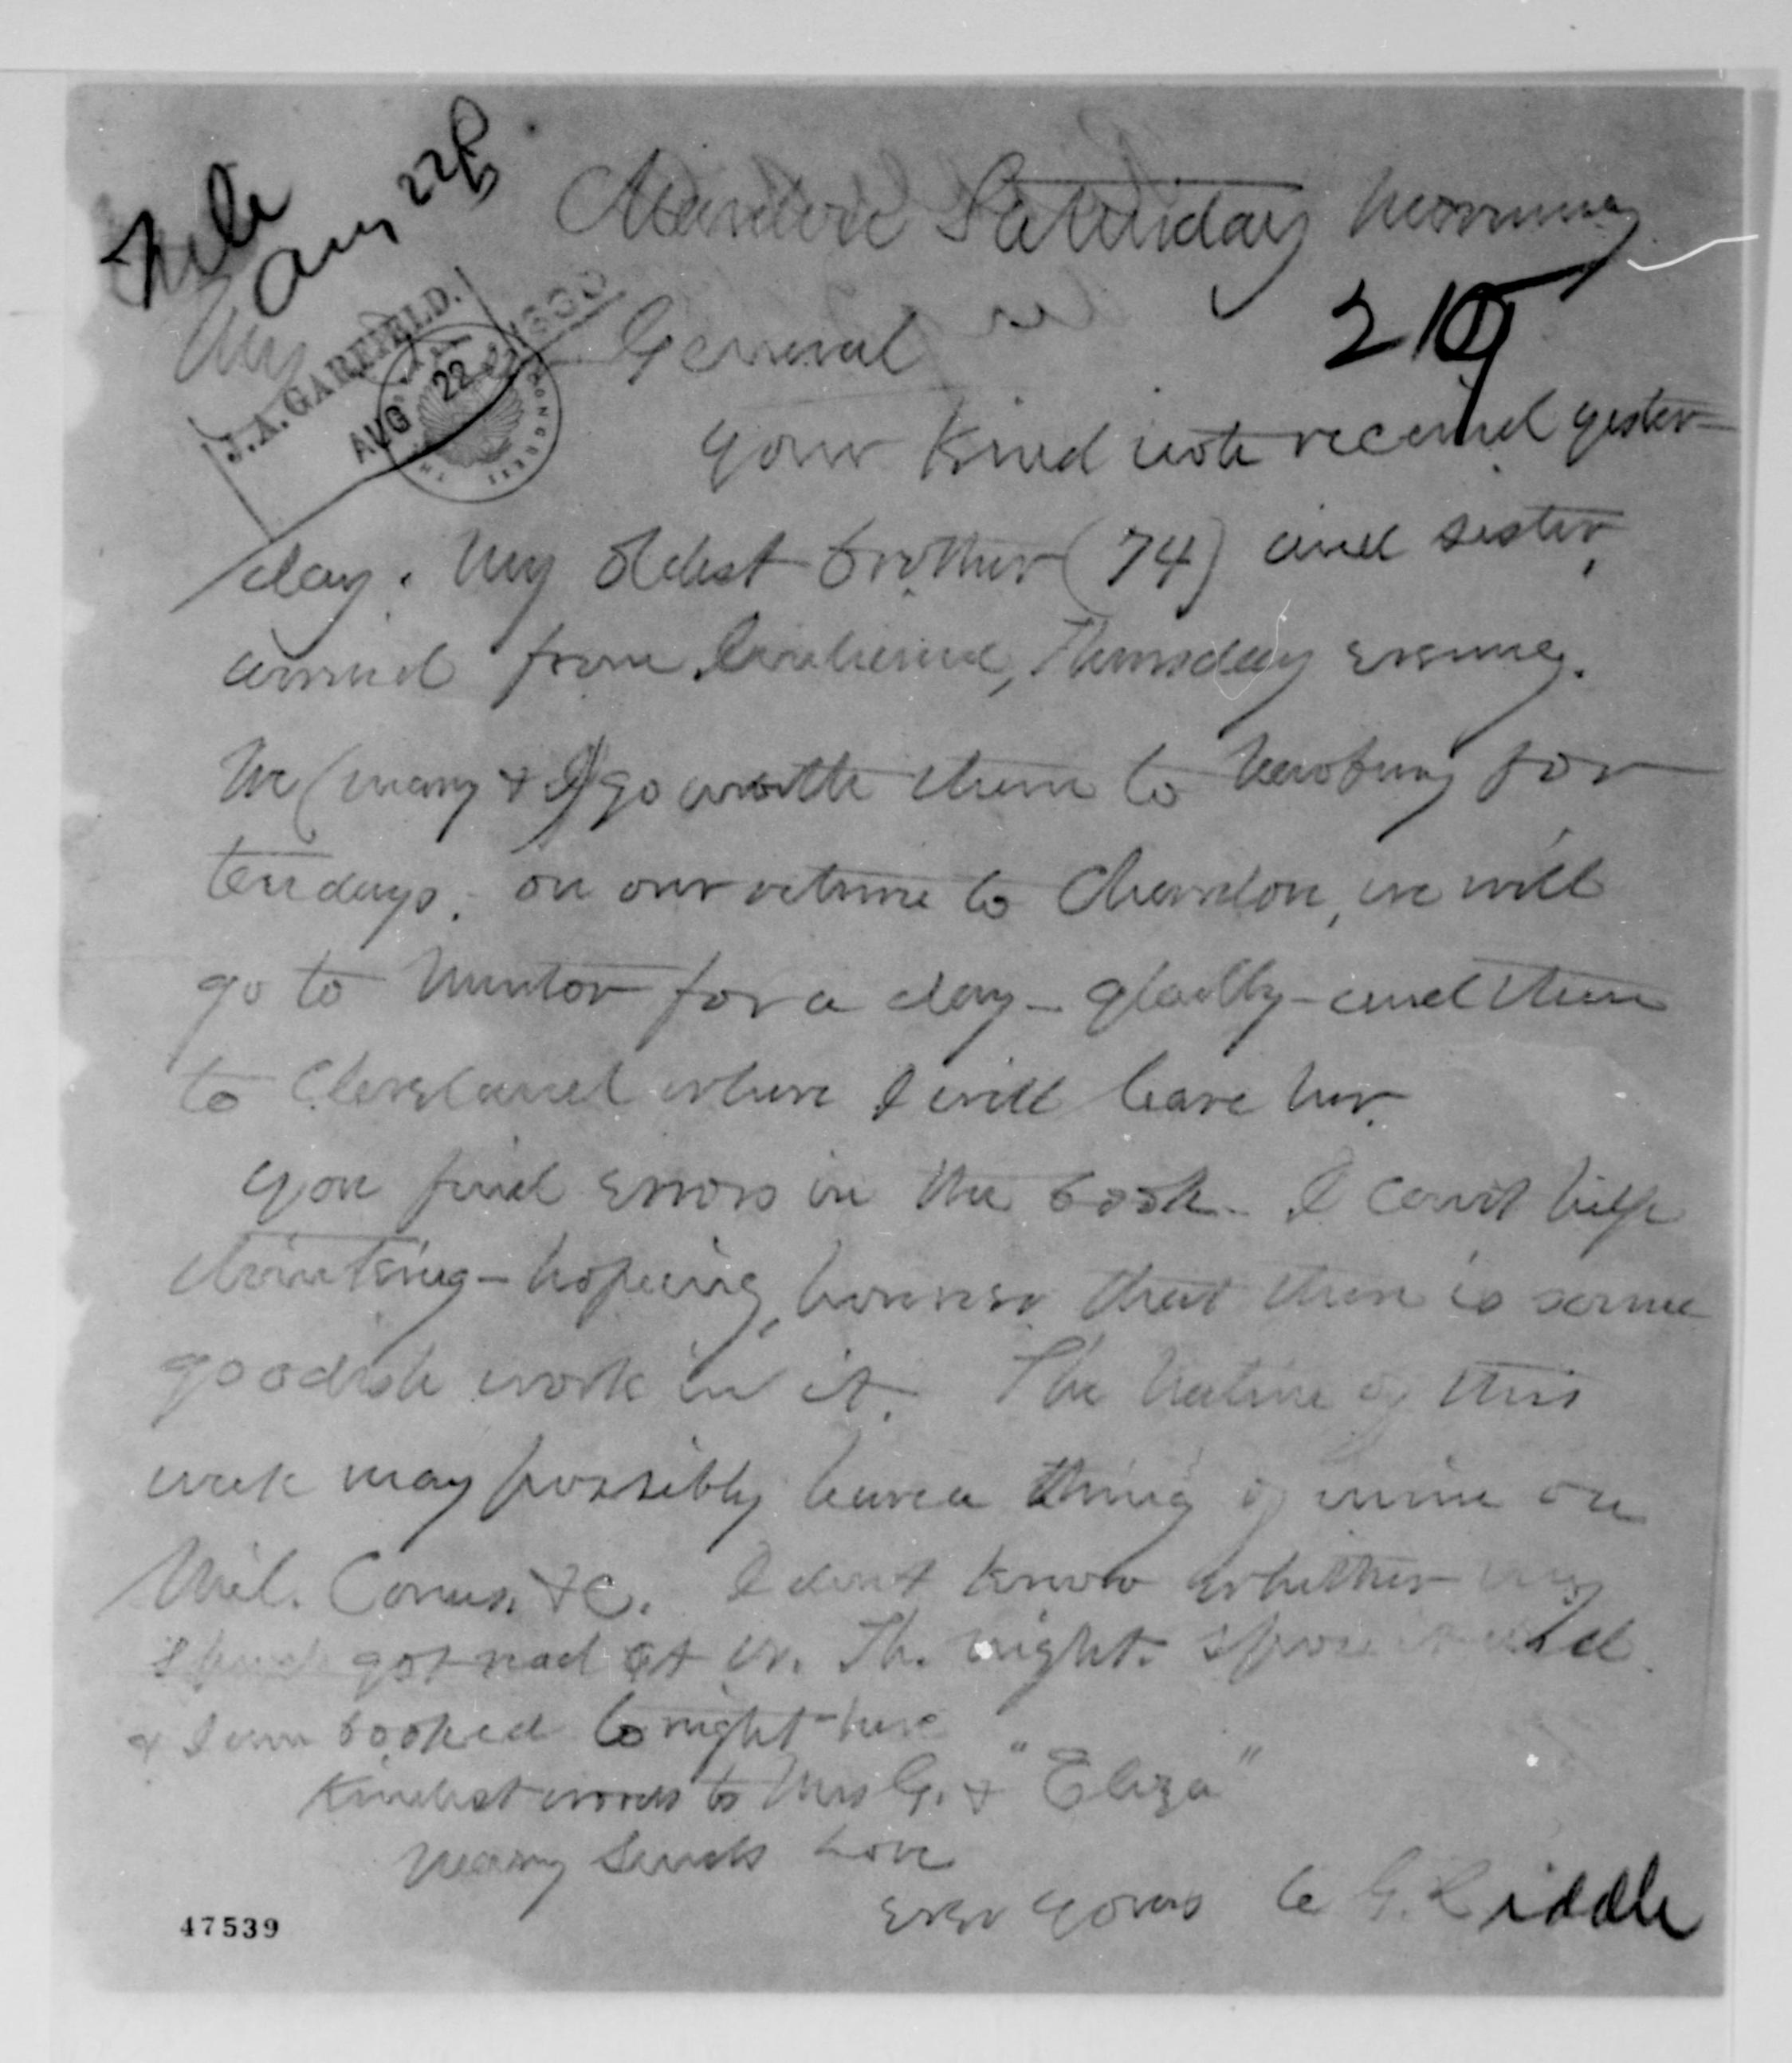 File
Aug 22
Saturday Morning
21
My General
J. A. GARFIELD.
AUG 22 1880
CONGRESS
Your kind note received yester-
day. My oldest brother (74) and sister,
arrived from Thursday evening.
We (Mary & I) go with them to Newbury for
ten days. on our return to Chardon, we will
go to Mentor for a day - gladly - and then
to Cleveland where I will leave her.
You find errors in the book - I can't help
thinking - hoping, however that there is some
goodish work in it. The Nation of this
week may possibly have a thing of mine on
Mil. Comns. &c. I don't know whether my
got read at Th. night.
& I am booked tonight here
Kindest words to Mrs G. & "Eliza"
Mary sends love
Ever yours A. G. Riddle
47539